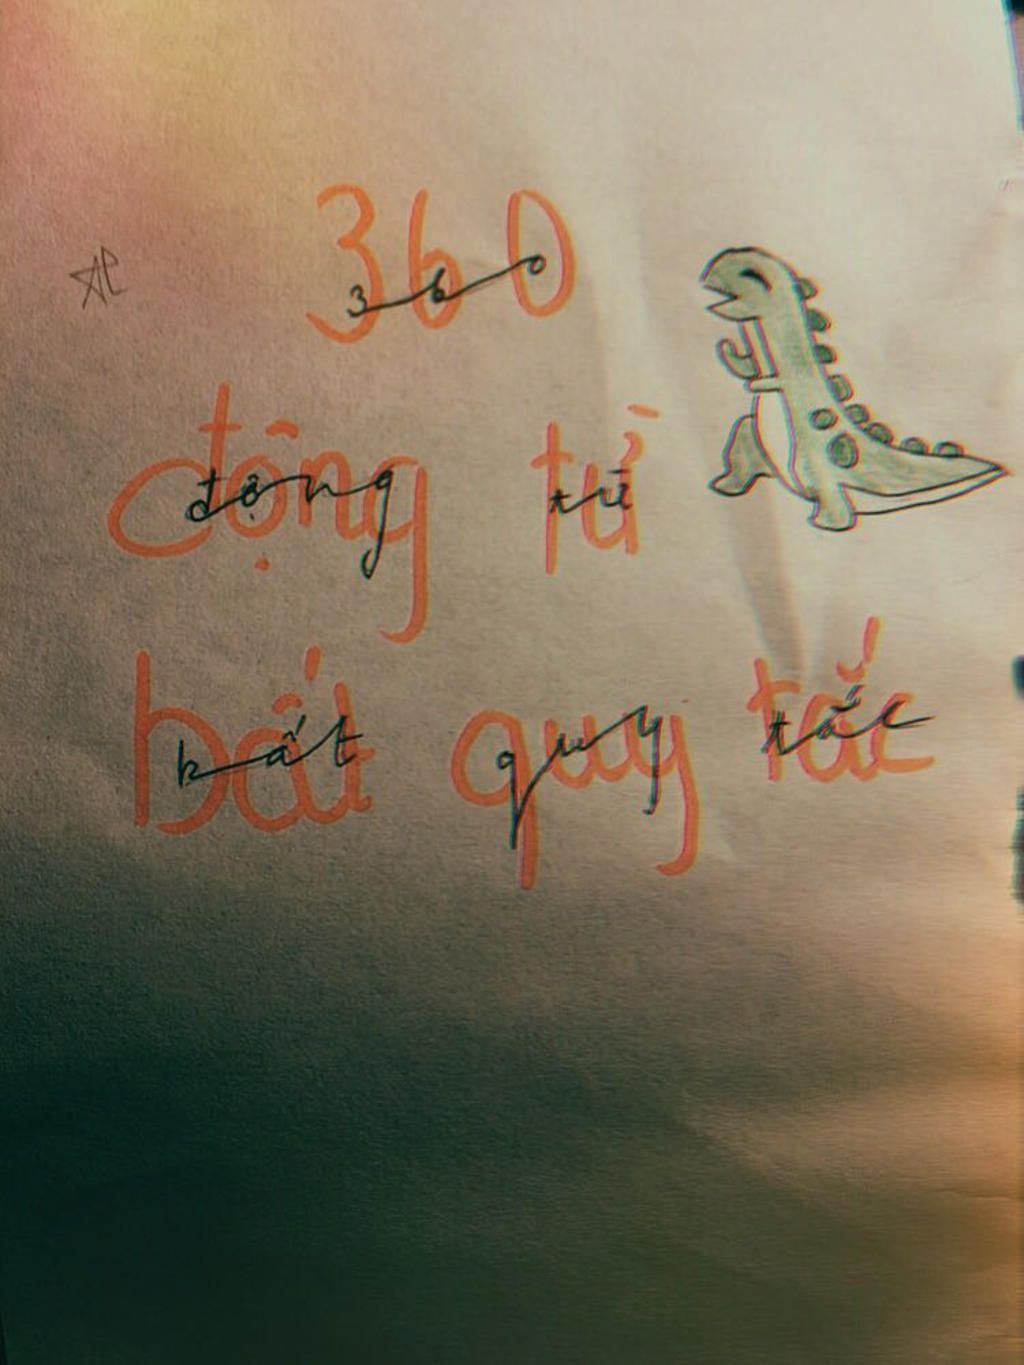 360
360
động từ
động từ
bất quy tắc
bất quy tắc